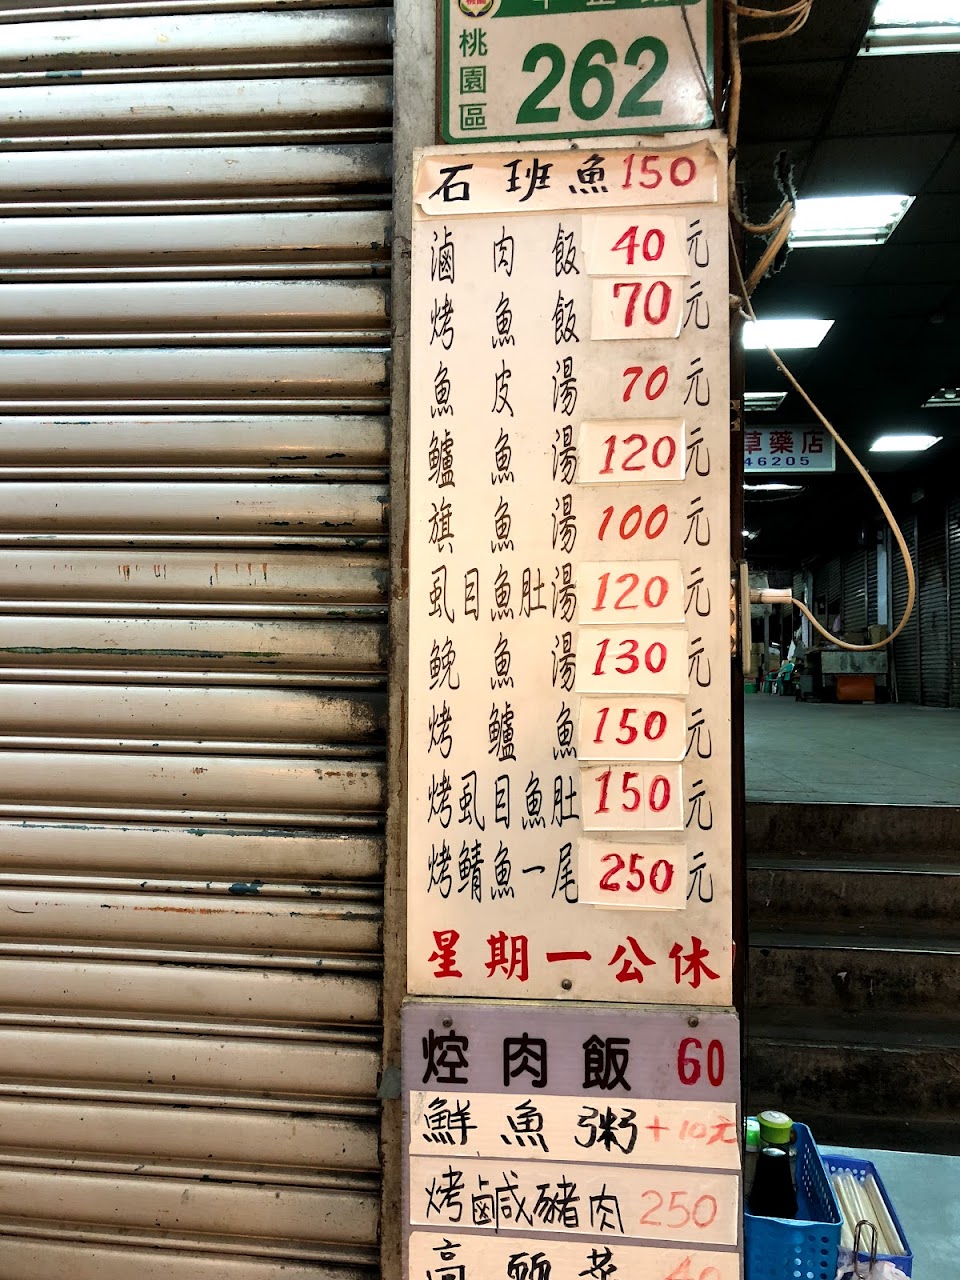 桃園區
262
石班魚150
滷肉飯 40元
烤魚飯 70元
魚皮湯 70元
鱸魚湯 120元
旗魚湯 100元
虱目魚肚湯 120元
鮸魚湯 130元
烤鱸魚 150元
烤虱目魚肚 150元
烤鯖魚一尾 250元
星期一公休
焢肉飯 60
鮮魚粥+10元
烤鹹豬肉 250
高麗菜 40
草藥店
46205